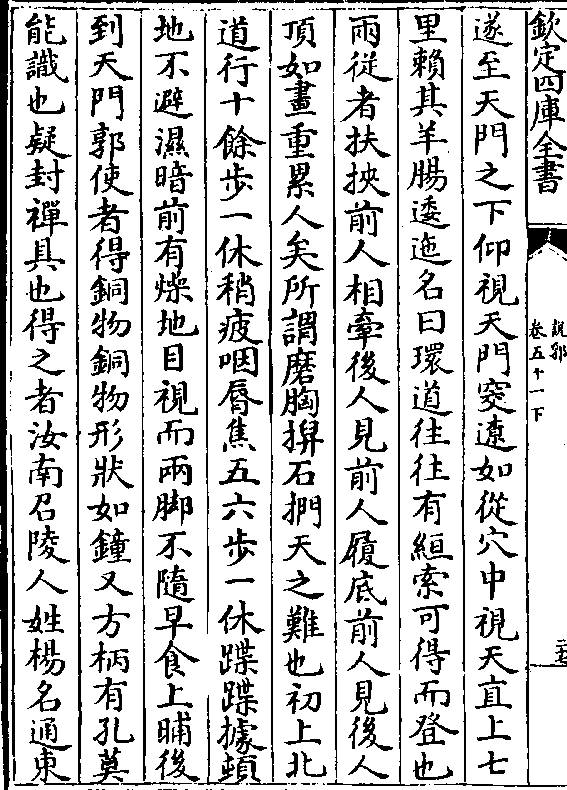 欽定四庫全書
說郛
卷五十一下
遂至天門之下仰視天門窔遼如從穴中視天直上七
里賴其羊腸逶迤名曰環道往往有絙索可得而登也
兩從者扶挾前人相牽後人見前人履底前人見後人
頂如畫重累人矣所謂磨胸捪石捫天之難也初上此
道行十餘步一休稍疲咽脣焦五六步一休蹀蹀據頓
地不避濕暗前有燥地目視而兩脚不隨早食上晡後
到天門郭使者得銅物銅物形狀如鐘又方柄有孔莫
能識也疑封禪具也得之者汝南召陵人姓楊名通東